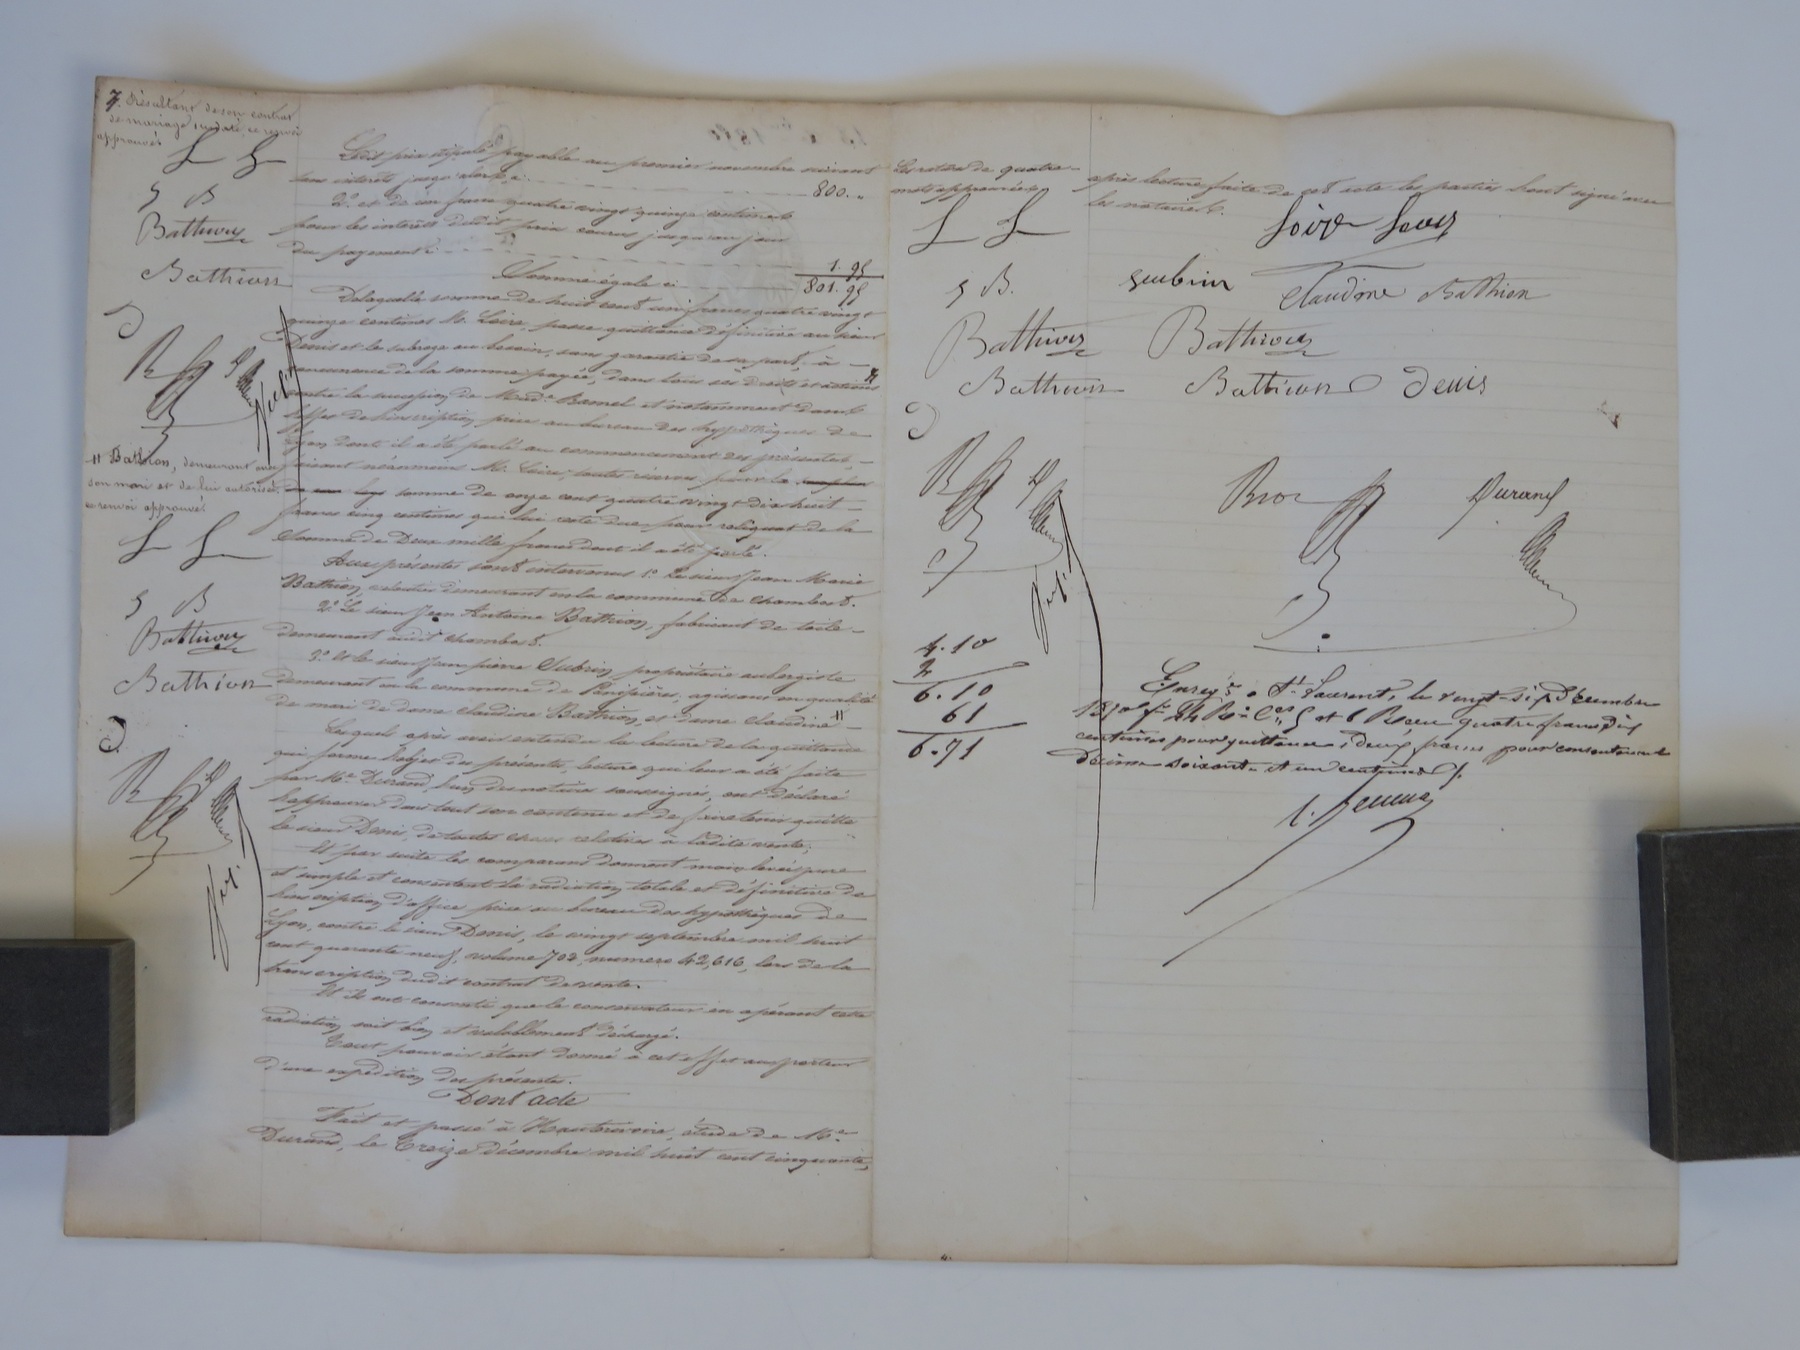 Résultant de son contrat
de mariage susdaté ce renvoi
approuvé.
L L
S B
Bathion
Bathion
Ledit prix stipulé payable au premier novembre suivant
sans intérêts jusqu'alors, ci 800. "
2.° et de un franc quatre vingt quinze centimes
pour les intérêts dudit prix courus jusqu'au jour
du payement ci 1. 95
Somme égale ci 801. 95
De laquelle somme de huit cent un francs quatre vingt
quinze centimes M. Loire, passe quittance définitive au sieur
Denis et le subroge au besoin, sans garantie de sa part, à
concurrence de la somme payée, dans tous ses droits et actions
contre la succession de Mad.e et notamment dans
l'effet de l'inscription prise au bureau des hypothèques de
Lyon dont il a été parlé au commencement des présentes,
faisant néanmoins M. Loire, toutes réserves pour la
somme de onze cent quatre vingt dix huit
francs cinq centimes qui lui reste due pour reliquat de la
somme de Deux mille francs dont il a été parlé.
H Bathion, demeurant avec
son mari et de lui autorisée.
ce renvoi approuvé.
L L
S B
Bathion
Bathion
Aux présentes sont intervenus 1.° Le sieur Jean Marie
Bathion, veloutier demeurant en la commune de Chambost.
2.° Le sieur Jean Antoine Bathion, fabricant de toile
demeurant audit Chambost.
3.° Et le sieur Jean pierre Subrin propriétaire aubergiste
demeurant en la commune de Panissières, agissant en qualité
de mari de dame Claudine Bathion, et dame Claudine H
Lesquels après avoir entendu la lecture de la quittance
qui forme l'objet des présentes, lecture qui leur a été faite
par M.e Durand, l'un des notaires soussignés, ont déclaré
l'approuver dans tout son contenu et de fait tenir quitte
le sieur Denis, de toutes choses relatives à ladite vente;
Et par suite les comparants donnent main levée pure
et simple et consentent la radiation totale et définitive de
l'inscription d'office prise au bureau des hypothèques de
Lyon, contre le sieur Denis, le vingt septembre mil huit
cent quarante neuf, volume 702, numéro 42,616, lors de la
transcription dudit contrat de vente.
Et ils ont consenti que le conservateur en opérant cette
radiation soit bien et valablement déchargé.
Tout pouvoir étant donné à cet effet au porteur
d'une expédition des présentes.
Dont acte
Fait et passé à étude de M.e
Durand, le treize décembre mil huit cent cinquante,
Les ratures de quatre
mots approuvées
L L
S B.
Bathion
Bathion
4.10
2
6.10
61
6.71
après lecture faite de cet acte les parties l'ont signé avec
les notaires.
Loire
subrin Claudine Bathion
Bathion
Bathion Denis
Durand
Enreg.ré à St. Laurent, le vingt-six Décembre
1850 f.o 44 R.o C.es 5 et 6 Reçu quatre francs dix
centimes pour quittance, deux francs pour consentement
décime soixante et un centimes.